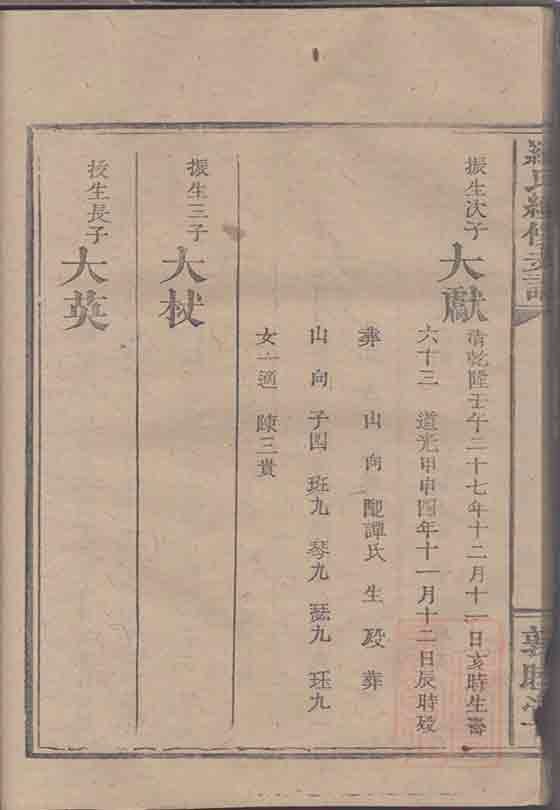 振生次子
大獻
清乾隆壬午二十七年十二月十一日亥時生壽
六十三 道光甲申四年十一月十二日辰時殁
葬 山向 配譚氏生殁葬
山向 子四 班九 琴九 瑟九 珏九
女一適 陳三貴
振生三子
大杖
生長子
大英